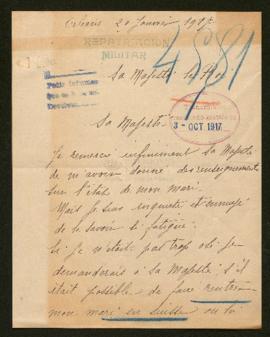 Orléans 20 Janvier 1917
REPATRIACION
MILITAR
4881
Sa Majesté le Roi
3 - OCT 1917
Sa Majesté
Je remercie infiniment Sa Majesté
de m'avoir donné des renseignements
sur l'état de mon mari.
Mais je suis inquiète et ennuyé
de le savoir si fatigué.
Si je n'étais pas trop osé je
demanderais à Sa Majesté s'il
était possible de faire rentrer
mon mari en Suisse ou la